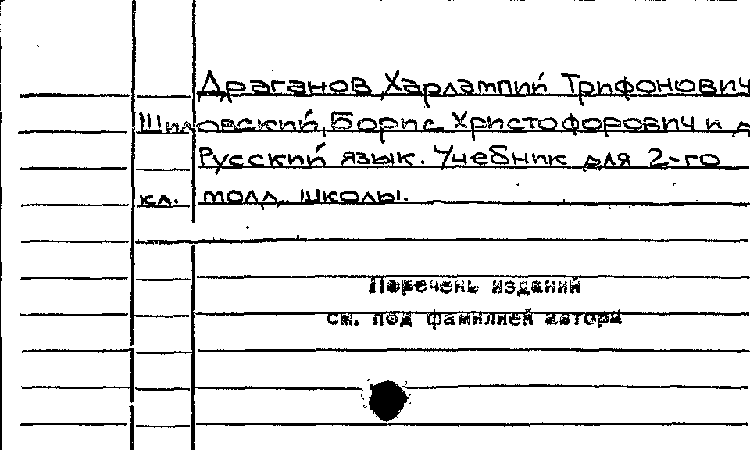 Драганов, Харлампий Трифонович
Шидловский, Борис Христофорович и д
Русский язык. Учебник для 2-го
кл. молд. школы.
Перечень изданий
см. под фамилией автора